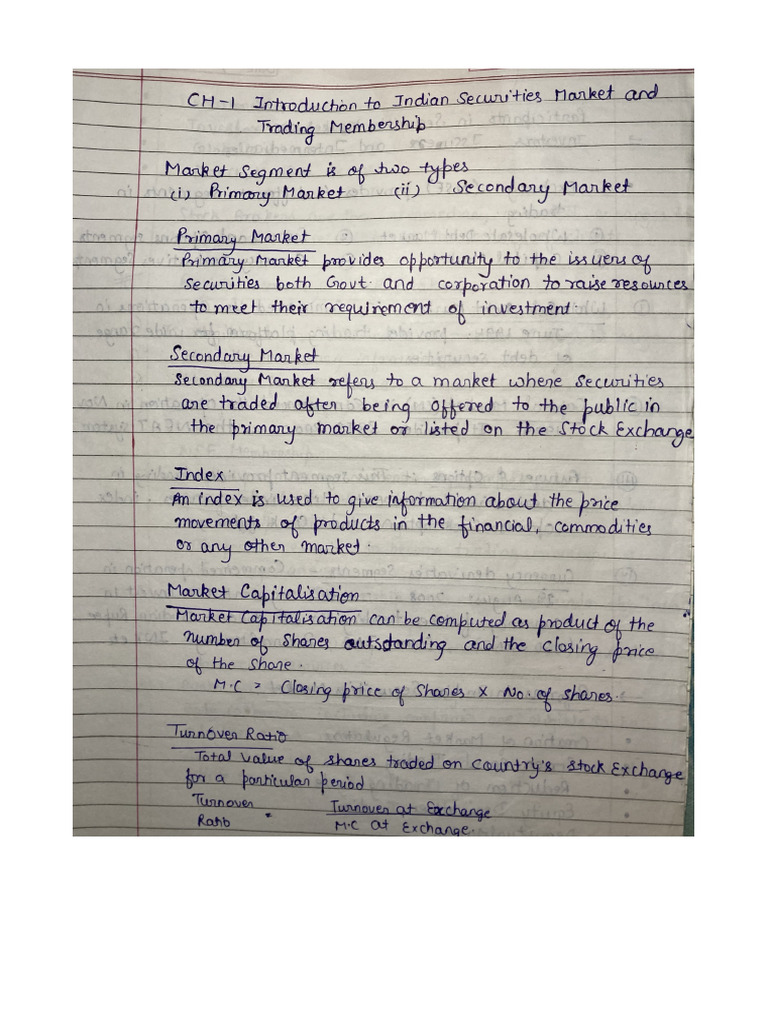 CH-1 Introduction to Indian Securities Market and
Trading Membership
Market Segment is of two types
(i) Primary Market (ii) Secondary Market
Primary Market
Primary Market provides opportunity to the issuers of
securities both Govt. and corporation to raise resources
to meet their requirement of investment.
Secondary Market
Secondary Market refers to a market where securities
are traded after being offered to the public in
the primary market or listed on the Stock Exchange
Index
An index is used to give information about the price
movements of products in the financial, commodities
or any other market.
Market Capitalisation
Market Capitalisation can be computed as product of the
number of shares outstanding and the closing price
of the share.
M.C = Closing price of Shares × No. of shares.
Turnover Ratio
Total value of shares traded on Country's Stock Exchange
for a particular period
Turnover Turnover at Exchange
Ratio = M.C at Exchange.